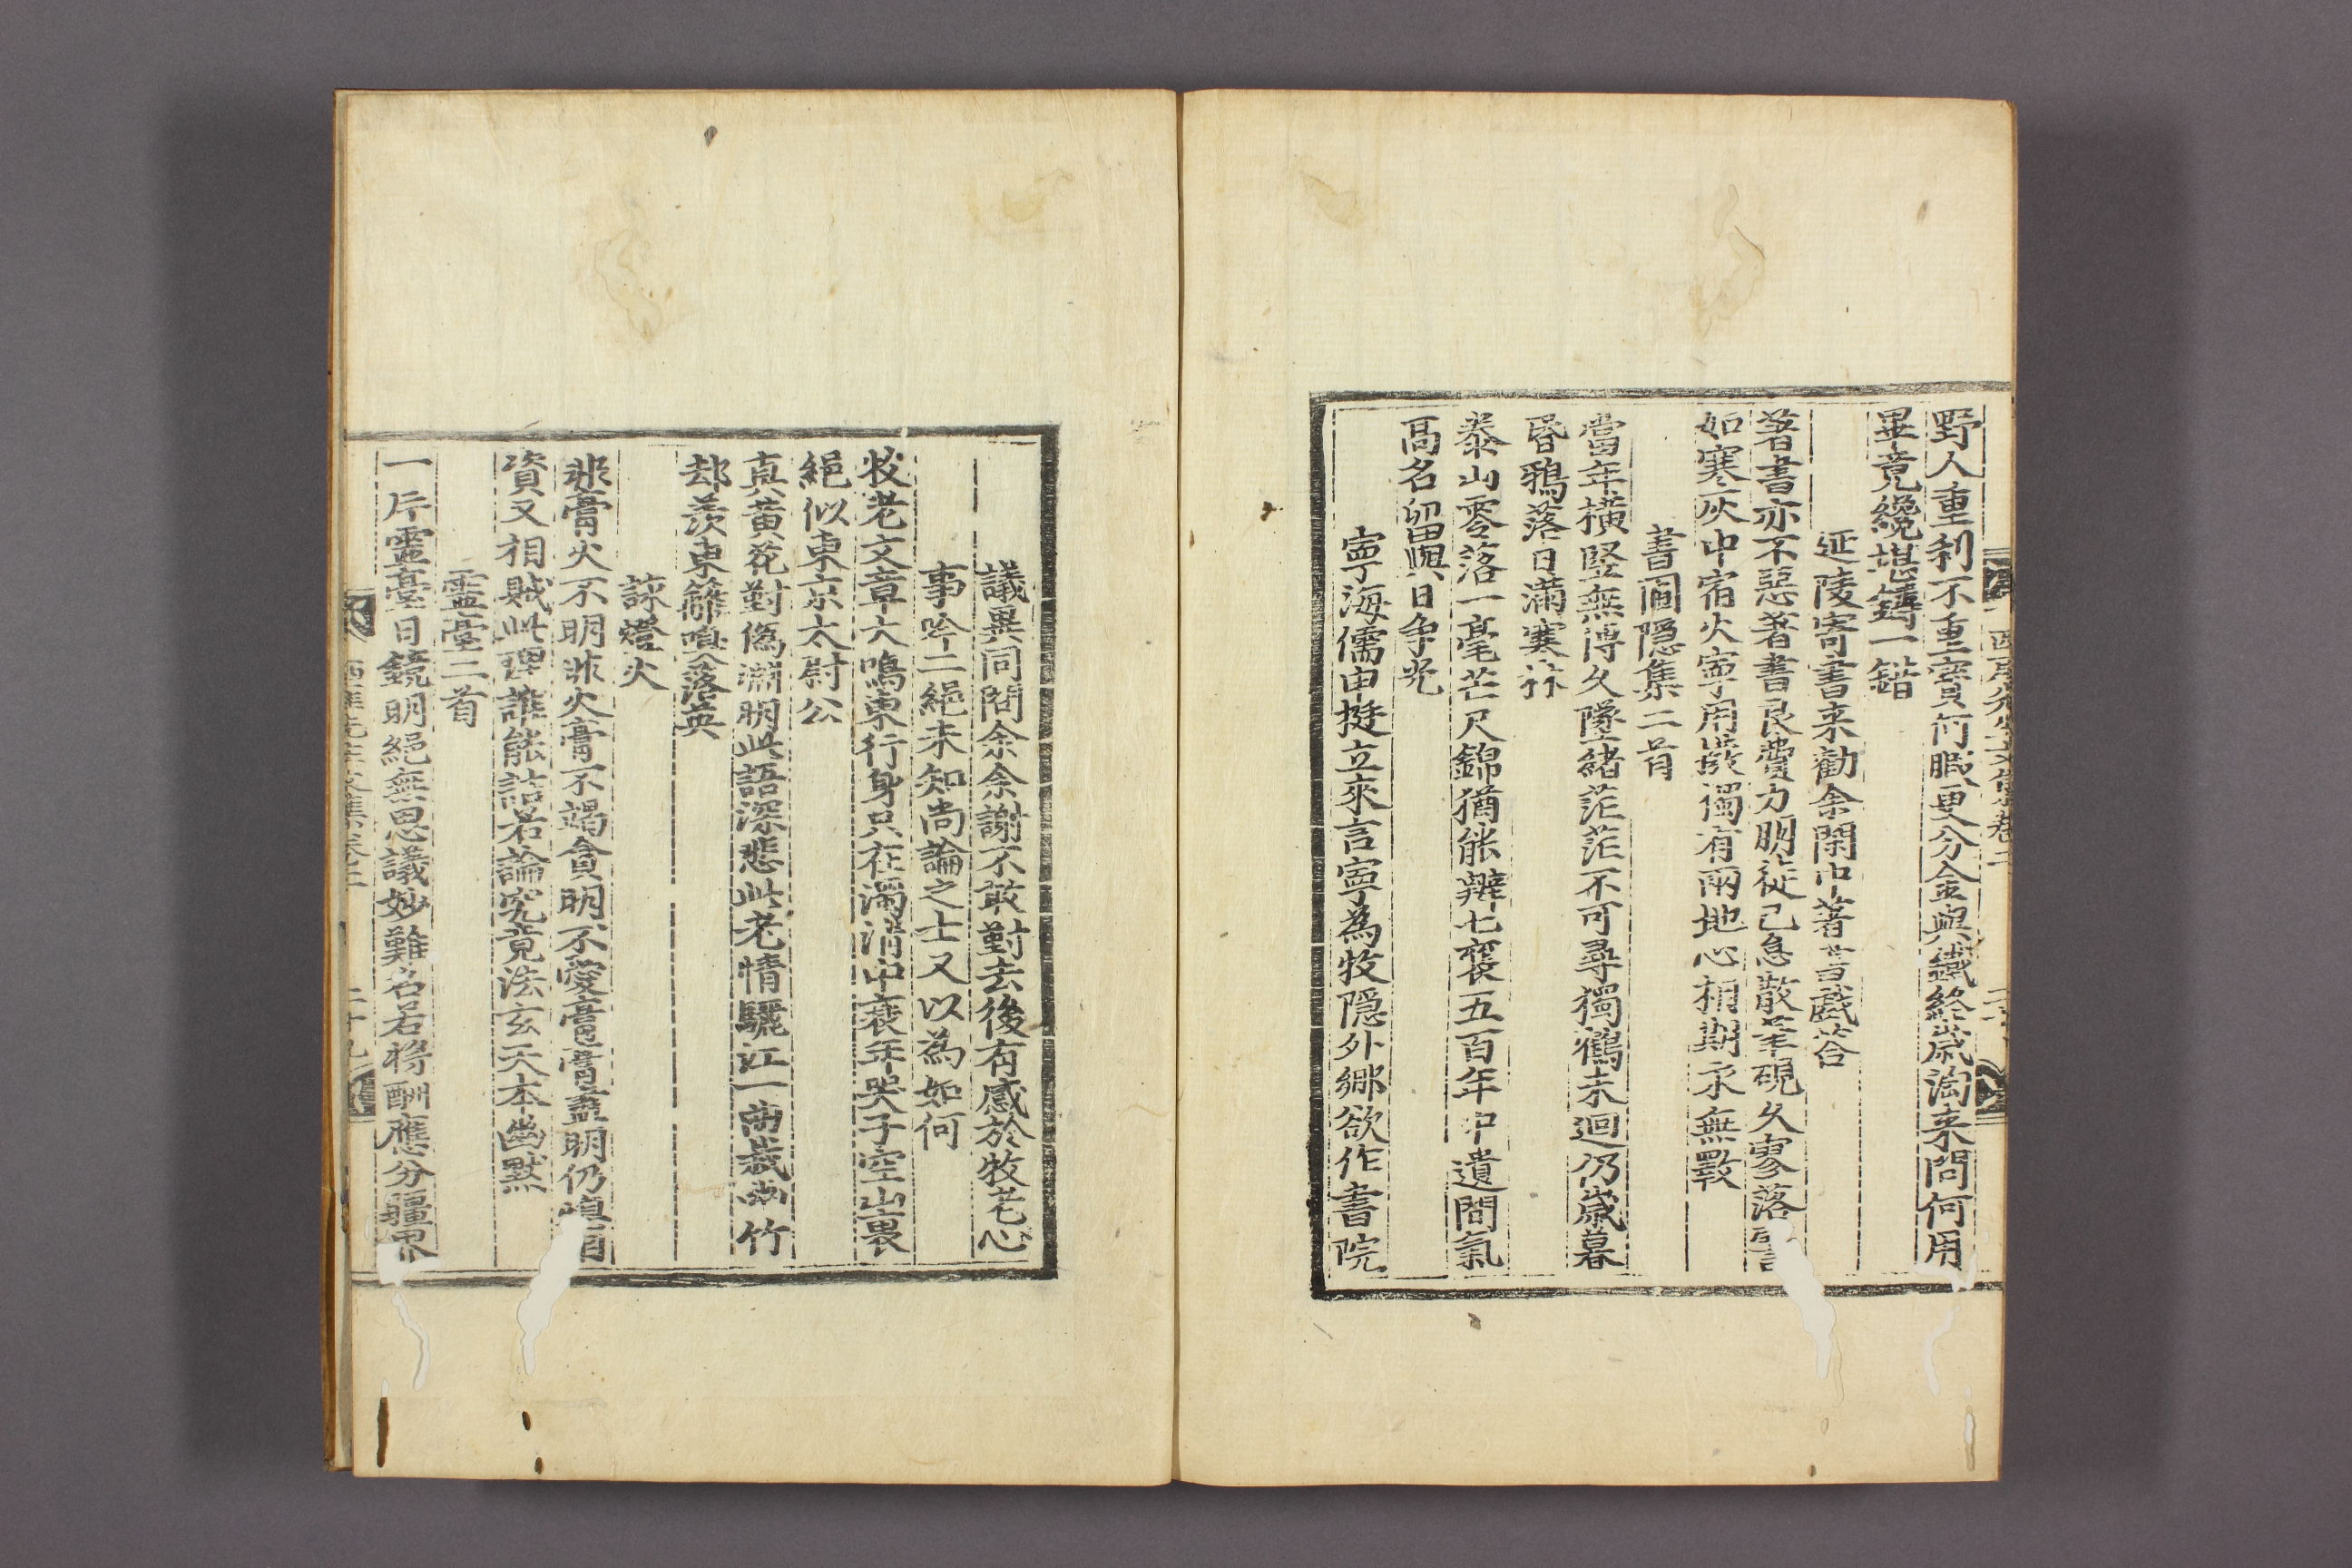 野人重利不重寶何暇更分金與鐵終歲淘来問何用
畢竟纔堪鑄一錯
延陵寄書来勸余閑中著書戱荅
著書亦不惡著書良費力朋從已息散筆硯久寥落
如寒灰中宿火寧用撥獨有兩地心相期永無斁
書圃隱集二首
當年橫竪無傳久墜緒茫茫不可尋獨鶴未迴仍歲暮
昏鴉落日滿寒林
泰山零落一毫芒尺錦猶能辨七襄五百年中遺間氣
高名留與日争光
寧海儒申挺立來言寧為牧隐外鄉欲作書院
議異同問余余謝不敢對去後有感於牧老心
事吟二絕未知尚論之士又以為如何
牧老文章大鳴東行身只在濁淸中衰年哭子空山裏
絕似東京太尉公
真黃花對僞淵明此語深悲此老情驪江一曲栽幽竹
却羨東籬嗅落英
詠燈火
非膏火不明非火膏不竭貪明不愛膏膏盡明仍
資又相賊此理誰能詰若論究竟法玄天本幽默
靈臺二首
一片靈臺日鏡明絕無思議妙難名若將酬應分疆界